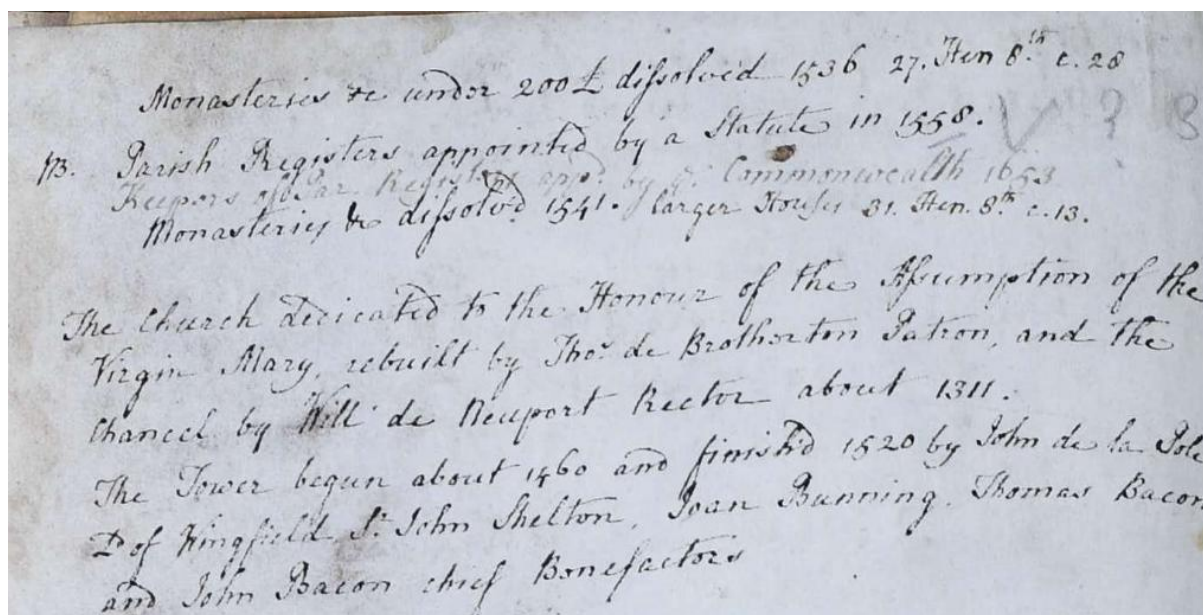 Monasteries &c under 200£ dissolved 1536 27. Hen 8.th c. 28
NB. Parish Registers appointed by a Statute in 1558. ? 3
Keepers of Par. Registers app.d by ye Commonwealth 1653
Monasteries &c dissolvd 1541. larger Houses 31. Hen. 8.th c. 13.
The Church dedicated to the Honour of the Assumption of the
Virgin Mary, rebuilt by Tho.s de Brotherton Patron, and the
Chancel by Will de Neuport Rector about 1311.
The Tower begun about 1460 and finish'd 1520 by John de la Pole
D of Wingfield, Sr. John Shelton, Joan Bunning, Thomas Bacon
and John Bacon chief Benefactors